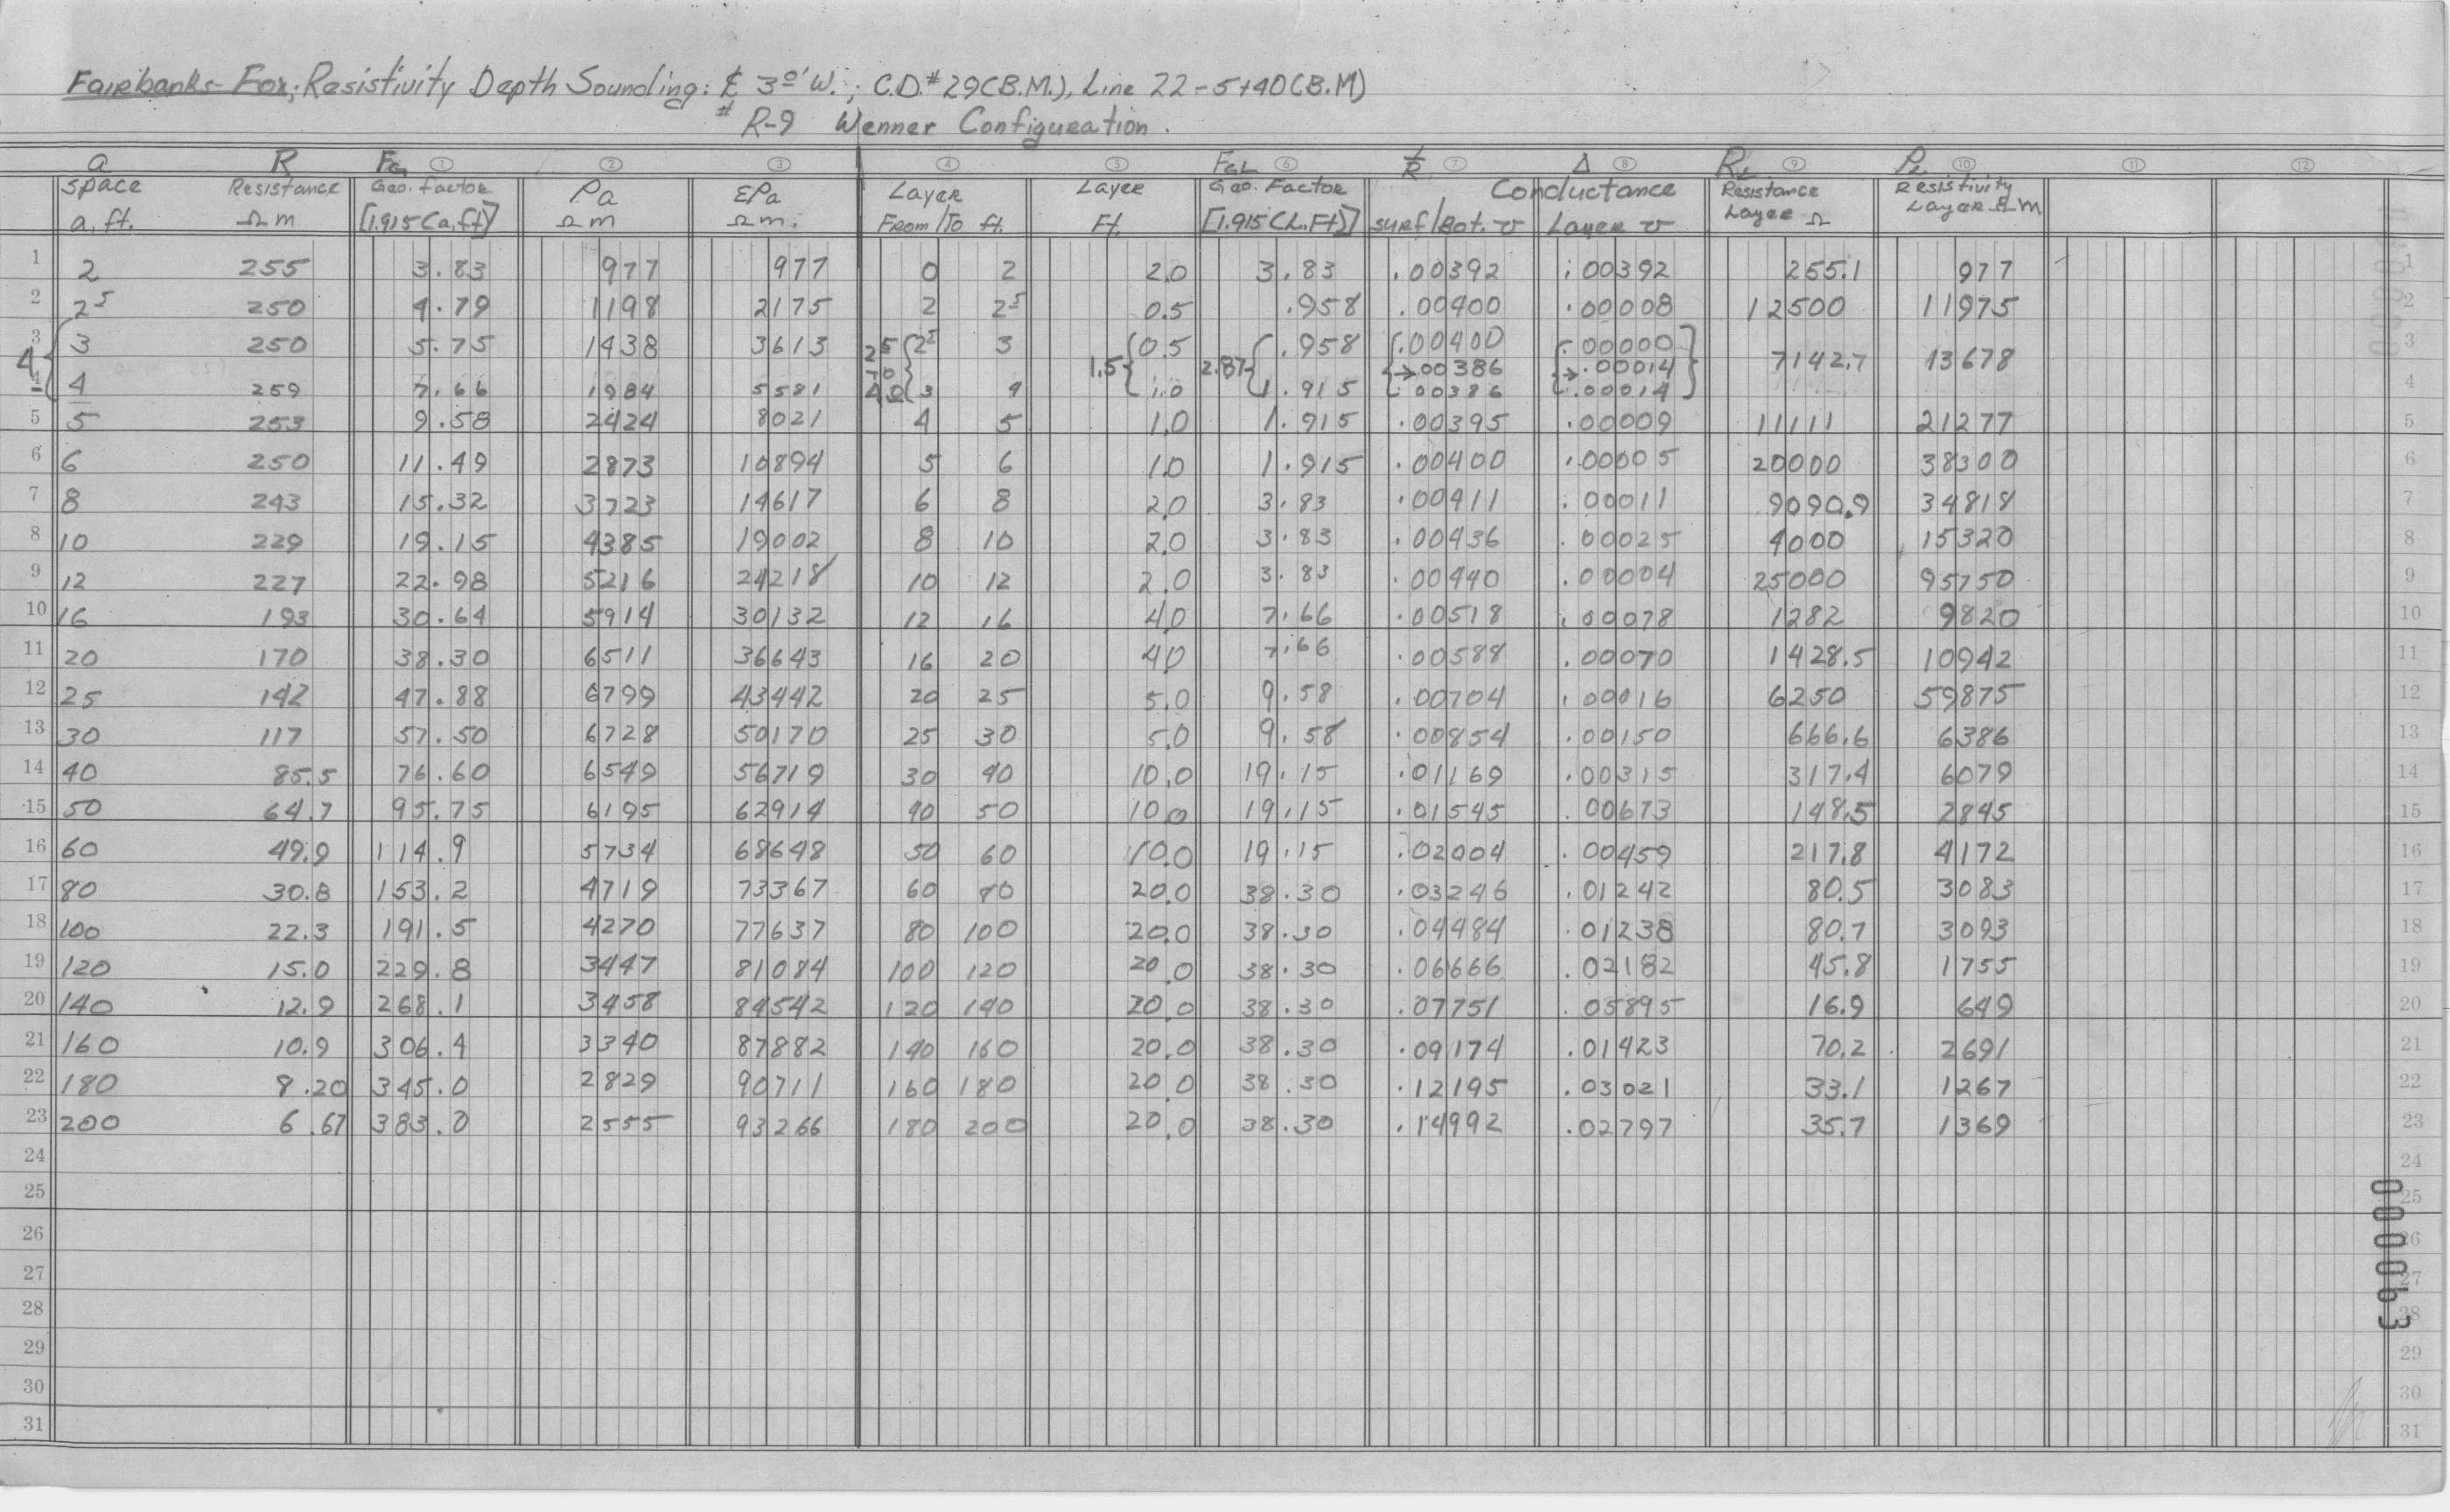 Fairbanks-Fox; Resistivity Depth Sounding: ℄ 30' W.; C.D.#29(B.M.), Line 22-5+40(B.M)
# R-9 Wenner Configuration.
a R FG ① ② ③ ④ ⑤ FGL ⑥ 1/R ⑦ Δ ⑧ RL ⑨ PL ⑩ ⑪ ⑫
space Resistance Geo. factor Pa ΣPa Layer Layer Geo. Factor Conductance Resistance Resistivity
a, ft. Ωm [1.915(a,ft)] Ωm Ωm. From/To ft. Ft. [1.915(L.Ft)] surf/Bot. ℧ Layer ℧ Layer Ω Layer Ωm
1 2 255 3.83 977 977 0 2 2.0 3.83 .00392 .00392 255.1 977 1
2 2⁵ 250 4.79 1198 2175 2 2⁵ 0.5 .958 .00400 .00008 12500 11975 2
3 3 250 5.75 1438 3613 2⁵ 3 0.5 .958 .00400 .00000 3
4 2⁵ to 40 1.5 2.87 →.00386 →.00014 7142.7 13678
4 4 259 7.66 1984 5581 3 4 1.0 1.915 .00386 .00014 4
5 5 253 9.58 2424 8021 4 5 1.0 1.915 .00395 .00009 11111 21277 5
6 6 250 11.49 2873 10894 5 6 1.0 1.915 .00400 .00005 20000 38300 6
7 8 243 15.32 3723 14617 6 8 2.0 3.83 .00411 .00011 9090.9 34818 7
8 10 229 19.15 4385 19002 8 10 2.0 3.83 .00436 .00025 4000 15320 8
9 12 227 22.98 5216 24218 10 12 2.0 3.83 .00440 .00004 25000 95750 9
10 16 193 30.64 5914 30132 12 16 4.0 7.66 .00518 .00078 1282 9820 10
11 20 170 38.30 6511 36643 16 20 4.0 7.66 .00588 .00070 1428.5 10942 11
12 25 142 47.88 6799 43442 20 25 5.0 9.58 .00704 .00016 6250 59875 12
13 30 117 57.50 6728 50170 25 30 5.0 9.58 .00854 .00150 666.6 6386 13
14 40 85.5 76.60 6549 56719 30 40 10.0 19.15 .01169 .00315 317.4 6079 14
15 50 64.7 95.75 6195 62914 40 50 10.0 19.15 .01545 .00673 148.5 2845 15
16 60 49.9 114.9 5734 68648 50 60 10.0 19.15 .02004 .00459 217.8 4172 16
17 80 30.8 153.2 4719 73367 60 80 20.0 38.30 .03246 .01242 80.5 3083 17
18 100 22.3 191.5 4270 77637 80 100 20.0 38.30 .04484 .01238 80.7 3093 18
19 120 15.0 229.8 3447 81084 100 120 20.0 38.30 .06666 .02182 45.8 1755 19
20 140 12.9 268.1 3458 84542 120 140 20.0 38.30 .07751 .05895 16.9 649 20
21 160 10.9 306.4 3340 87882 140 160 20.0 38.30 .09174 .01423 70.2 2691 21
22 180 8.20 345.0 2829 90711 160 180 20.0 38.30 .12195 .03021 33.1 1267 22
23 200 6.67 383.0 2555 93266 180 200 20.0 38.30 .14992 .02797 35.7 1369 23
24 24
25 25
26 26
27 27
28 28
29 29
30 30
31 31
000063